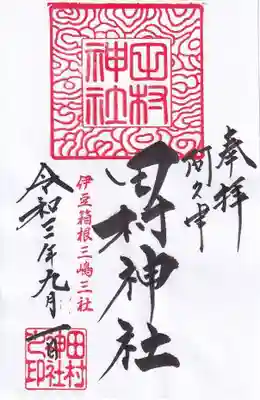 奉拝
阿久津
田村神社
田村
神社
伊豆箱根三嶋三社
令和三年九月一日
田村
神社
之印